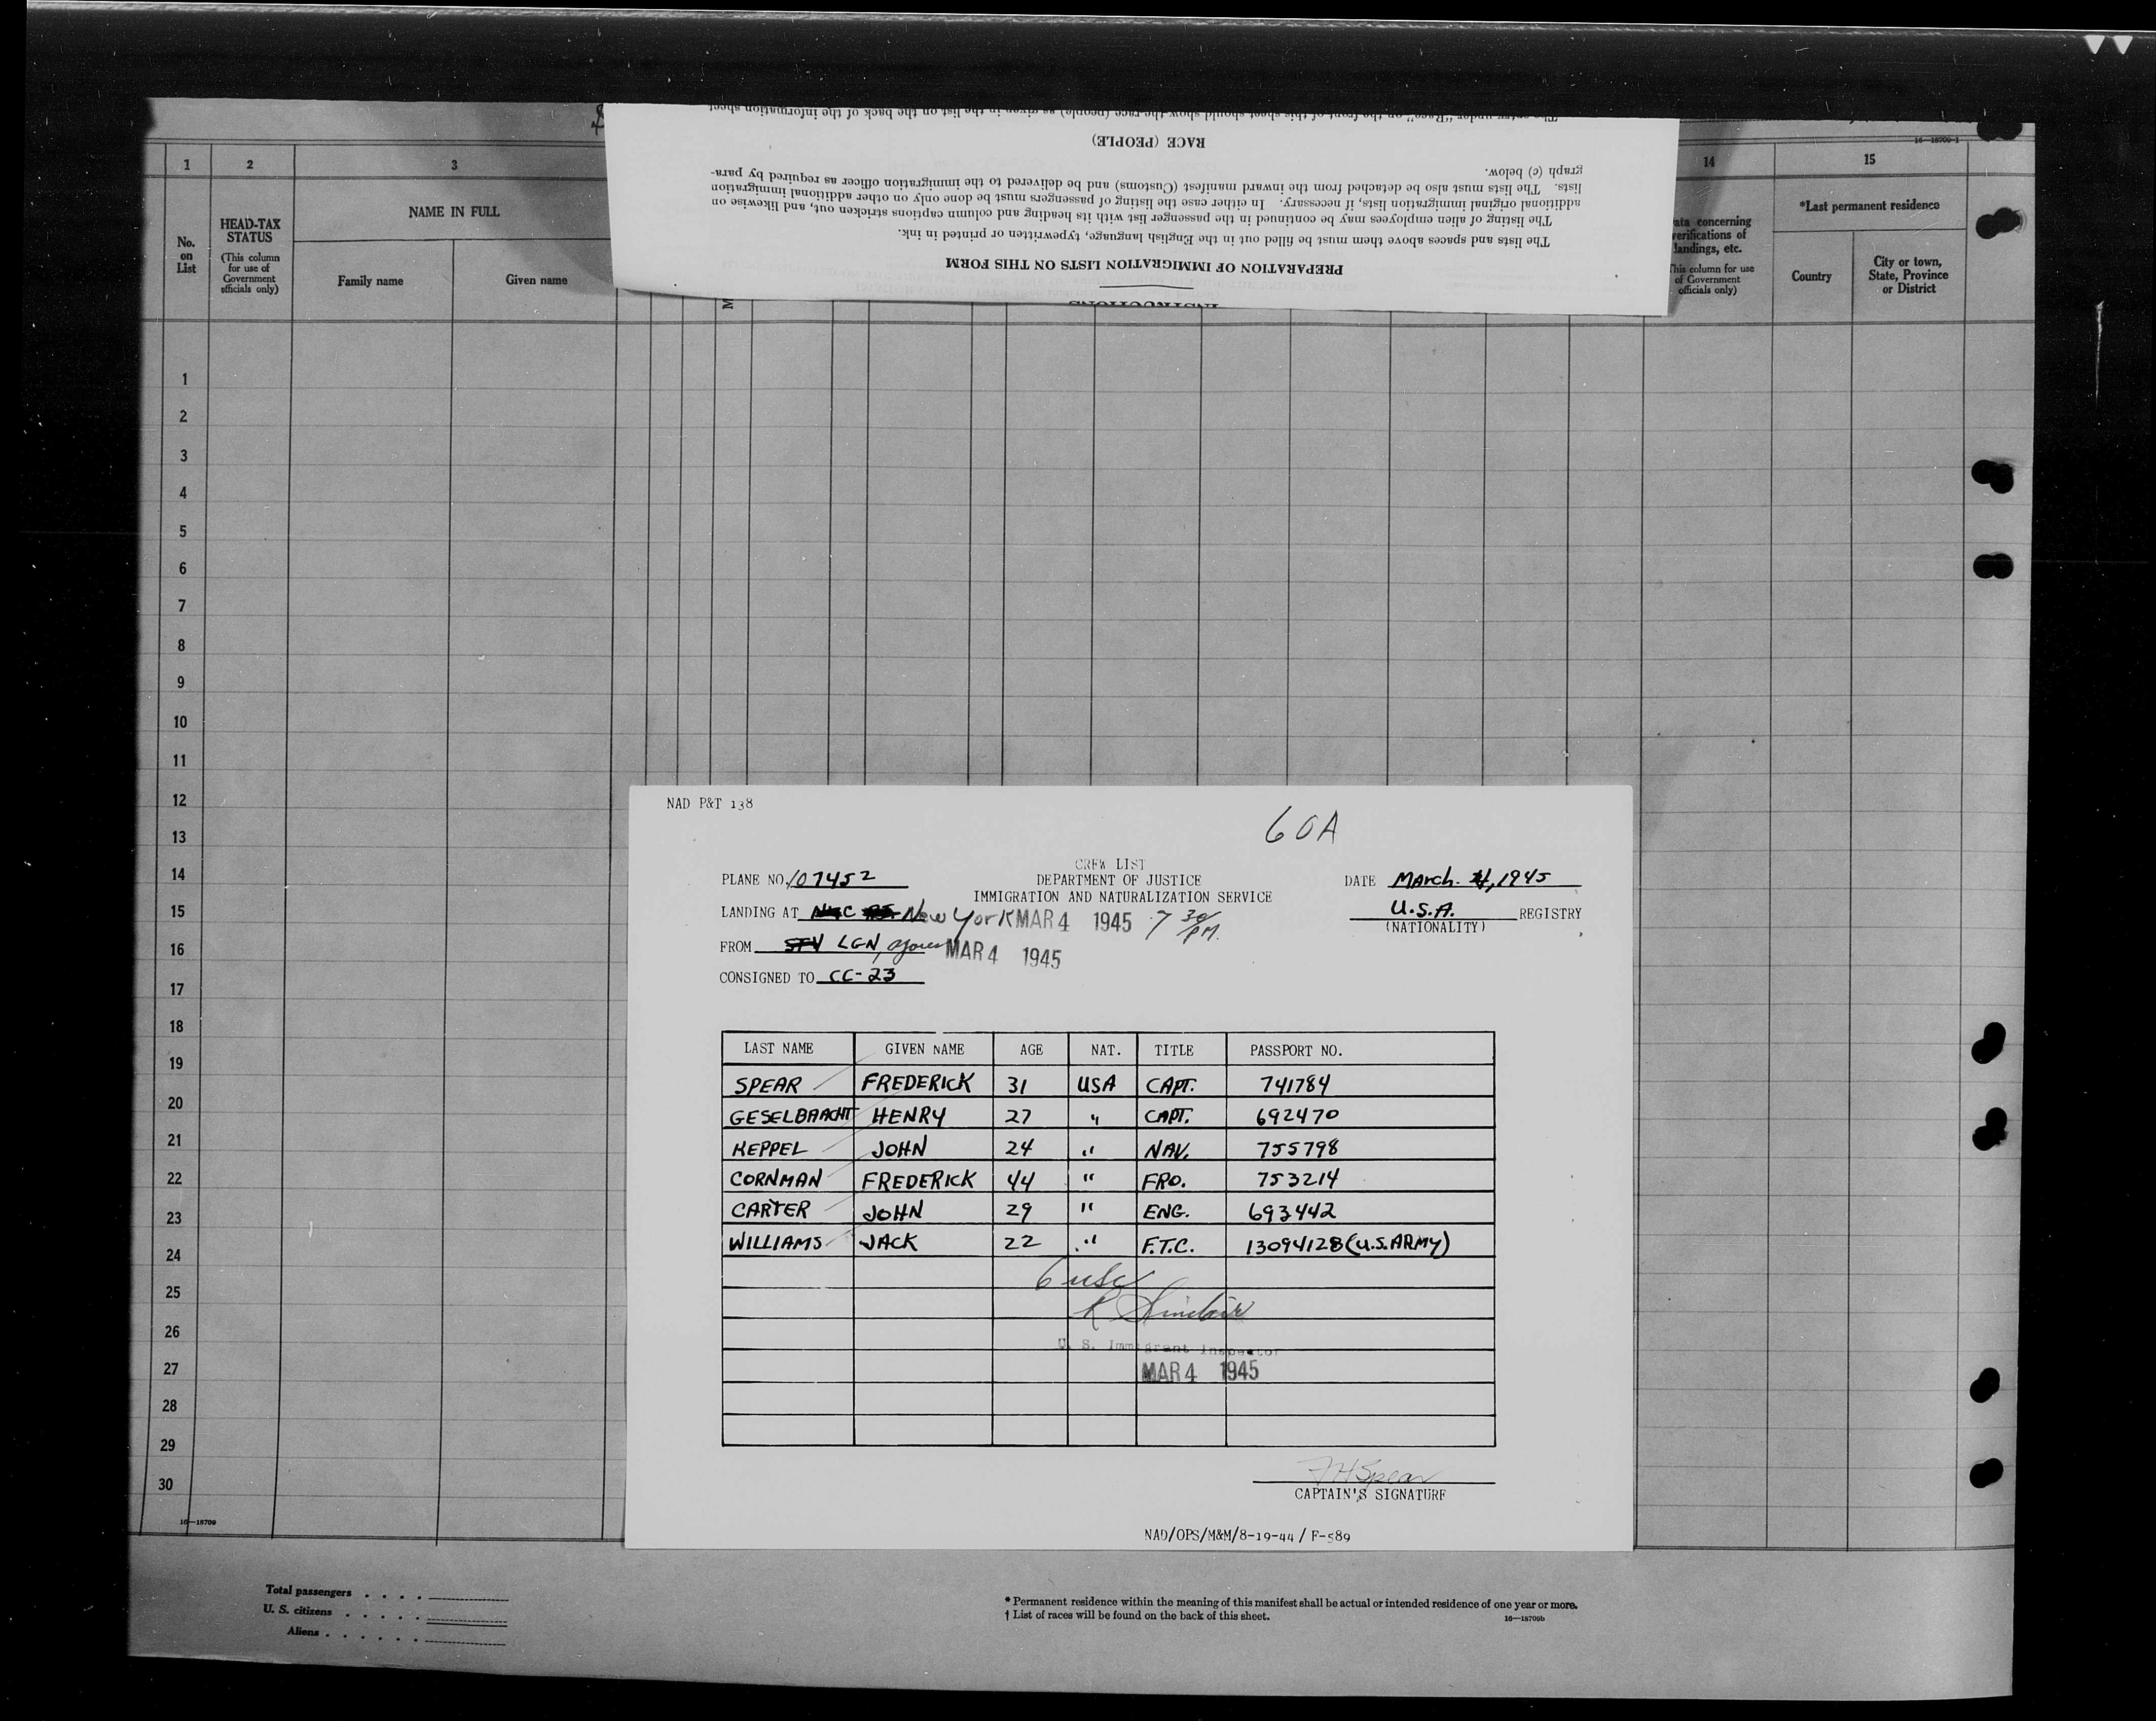 16—18709-1
1 2 3 14 15
No. on List
HEAD-TAX STATUS
(This column for use of Government officials only)
NAME IN FULL
Family name Given name
verifications of
landings, etc.
of Government
officials only)
*Last permanent residence
Country
City or town, State, Province or District
INSTRUCTIONS
PREPARATION OF IMMIGRATION LISTS ON THIS FORM
The lists and spaces above them must be filled out in the English language, typewritten or printed in ink.
The listing of alien employees may be continued in the passenger list with its heading and column captions stricken out, and likewise on
additional original immigration lists, if necessary. In either case the listing of passengers must be done only on other additional immigration
lists. The lists must also be detached from the inward manifest (Customs) and be delivered to the immigration officer as required by para-
graph (c) below.
RACE (PEOPLE)
The entry under "Race" on the front of this sheet should show the race (people) as given in the list on the back of the information sheet
1
2
3
4
5
6
7
8
9
10
11
12
13
14
15
16
17
18
19
20
21
22
23
24
25
26
27
28
29
30
16—18709
NAD P&T 138
60A
CREW LIST
PLANE NO. 107452 DEPARTMENT OF JUSTICE DATE March 4, 1945
IMMIGRATION AND NATURALIZATION SERVICE
LANDING AT New York MAR 4 1945 7 30/PM. U.S.A. REGISTRY
(NATIONALITY)
FROM LGN, Azores MAR 4 1945
CONSIGNED TO CC-23
LAST NAME GIVEN NAME AGE NAT. TITLE PASSPORT NO.
SPEAR FREDERICK 31 USA CAPT. 741784
GESELBRACHT HENRY 27 " CAPT. 692470
KEPPEL JOHN 24 " NAV. 755798
CORNMAN FREDERICK 44 " FRO. 753214
CARTER JOHN 29 " ENG. 693442
WILLIAMS JACK 22 " F.T.C. 13094128 (U.S. ARMY)
6 USC
R Sinclair
U. S. Immigrant Inspector
MAR 4 1945
FHSpear
CAPTAIN'S SIGNATURE
NAD/OPS/M&M/8-19-44/F-589
Total passengers . . . .
U. S. citizens . . . . .
Aliens . . . . . .
* Permanent residence within the meaning of this manifest shall be actual or intended residence of one year or more.
† List of races will be found on the back of this sheet. 16—18709b